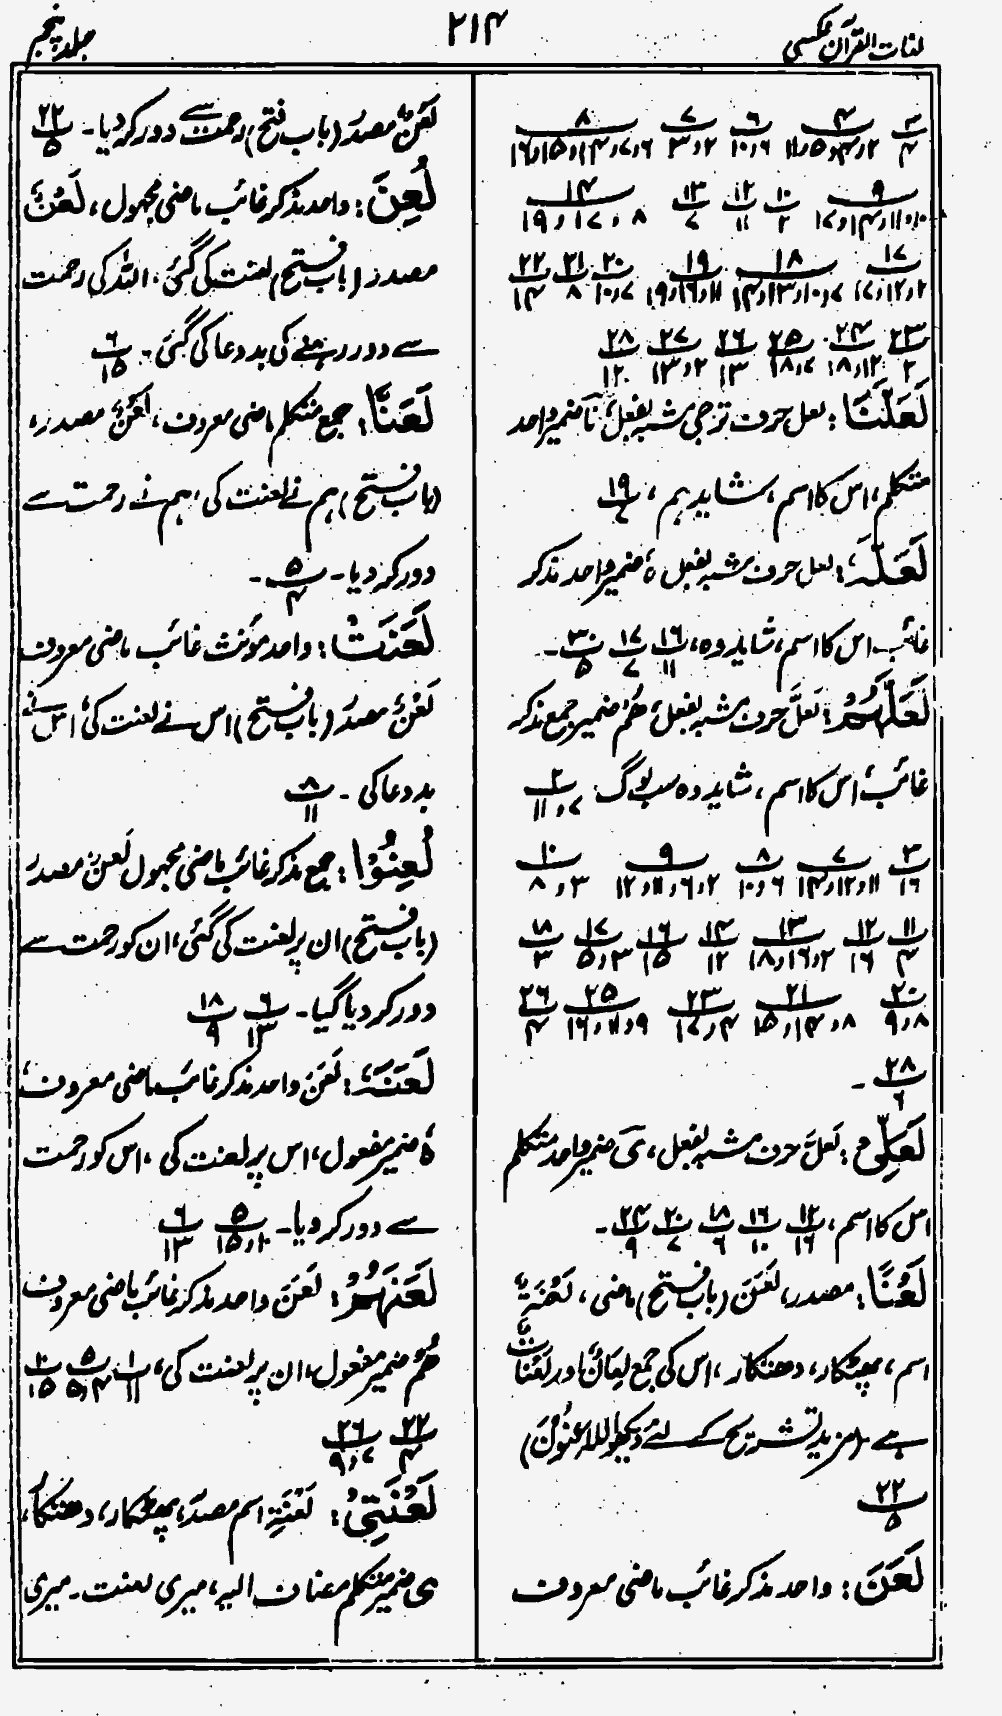 لغات القرآن عکسی
۲۱۴
جلد پنجم
۳/۴ ۴/۲و۴و۵و۱۱ ۶/۶و۱۰ ۷/۲و۳ ۸/۶و۷و۱۴و۱۵و۱۶
۹/۱۰و۱۱و۱۴و۱۷ ۱۰/۲ ۱۲/۱۱ ۱۳/۷ ۱۴/۸و۱۷و۱۹
۱۷/۲و۱۲و۱۷ ۱۸/۷و۱۰و۱۳و۱۴ ۱۹/۱۱و۱۶و۱۹ ۲۰/۷و۱۰ ۲۱/۸ ۲۲/۱۴
۲۳/۲ ۲۴/۱۲و۱۸ ۲۵/۷و۱۸ ۲۶/۱۳ ۲۷/۲و۱۳ ۲۸/۱۲
لَعَلَّنَا: لعل حرف ترجی مشبہ بفعل، نَا ضمیر واحد
متکلم، اس کا اسم، شاید ہم، ۱۹/۷
لَعَلَّہٗ: لعل حرف مشبہ بفعل ہٗ ضمیر واحد مذکر
غائب۔ اس کا اسم، شاید وہ، ۱۶/۱۱ ۱۷/۷ ۳۰/۵۔
لَعَلَّہُمْ: لَعَلَّ حرف مشبہ بفعل، ھُمْ ضمیر جمع مذکر
غائب، اس کا اسم، شاید وہ سب لوگ ۲/۷و۱۱
۳/۱۶ ۷/۱۱و۱۲و۱۴ ۸/۶و۱۰ ۹/۲و۶و۱۱و۱۲ ۱۰/۳و۸
۱۱/۴ ۱۲/۱۶ ۱۳/۲و۱۶و۱۸ ۱۴/۱۲ ۱۶/۱۵ ۱۷/۳و۵ ۱۸/۳
۲۰/۸و۹ ۲۱/۸و۱۴و۱۵ ۲۳/۴و۱۷ ۲۵/۹و۱۱و۱۶ ۲۶/۴
۲۸/۶۔
لَعَلِّیْ: لَعَلَّ حرف مشبہ بفعل، یَ ضمیر واحد متکلم
اس کا اسم، ۱۲/۱۶ ۱۶/۱۰ ۱۸/۶ ۲۰/۷ ۲۴/۹۔
لَعْنًا: مصدر، لَعَنَ (باب فتح) ماضی، لَعْنَۃٌ
اسم، پھٹکار، دھتکار، اس کی جمع لِعَانٌ اور لَعْنَاتٌ
ہے۔ (مزید تشریح کے لئے دیکھو اللّٰعِنُوْنَ)
۲۲/۵
لَعَنَ: واحد مذکر غائب ماضی معروف
لَعْنٌ مصدر (باب فتح) رحمت سے دور کر دیا۔ ۲۲/۵
لُعِنَ: واحد مذکر غائب ماضی مجہول، لَعْنٌ
مصدر (باب فتح) لعنت کی گئی، اللہ کی رحمت
سے دور رہنے کی بد دعا کی گئی۔ ۶/۱۵
لَعَنَّا: جمع متکلم ماضی معروف، لَعْنٌ مصدر،
(باب فتح) ہم نے لعنت کی، ہم نے رحمت سے
دور کر دیا۔ ۵/۴۔
لَعَنَتْ: واحد مؤنث غائب ماضی معروف
لَعْنٌ مصدر (باب فتح) اس نے لعنت کی، اس نے
بد دعا کی۔ ۸/۱۱
لُعِنُوْا: جمع مذکر غائب ماضی مجہول لَعْنٌ مصدر
(باب فتح) ان پر لعنت کی گئی، ان کو رحمت سے
دور کر دیا گیا۔ ۶/۱۳ ۱۸/۹
لَعَنَہٗ: لَعَنَ واحد مذکر غائب ماضی معروف،
ہٗ ضمیر مفعول، اس پر لعنت کی، اس کو رحمت
سے دور کر دیا۔ ۵/۱۰و۱۵ ۶/۱۳
لَعَنَہُمْ: لَعَنَ واحد مذکر غائب ماضی معروف
ھُمْ ضمیر مفعول، ان پر لعنت کی، ۱/۱۱ ۵/۴و۵ ۱۰/۱۵
۲۲/۴ ۲۶/۷و۹
لَعْنَتِیْ: لَعْنَۃِ اسم مصدر، پھٹکار، دھتکار،
ی ضمیر متکلم مضاف الیہ، میری لعنت۔ میری